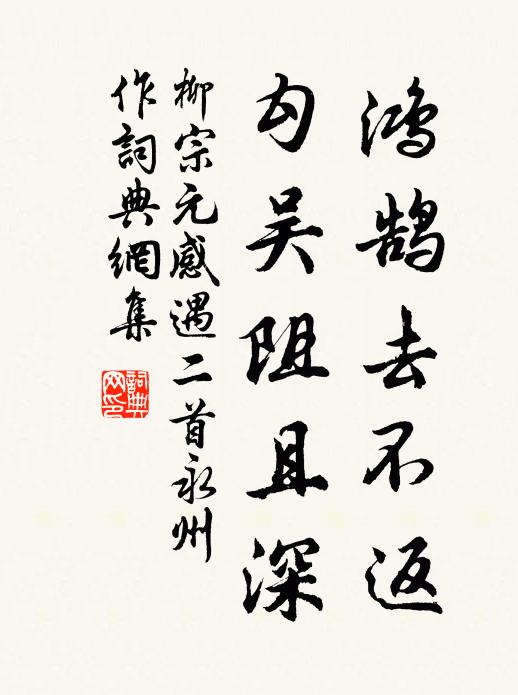 鴻鵠去不返
勾吴阻且深
柳宗元感遇二首永州
作詞典網集
詞典
网印